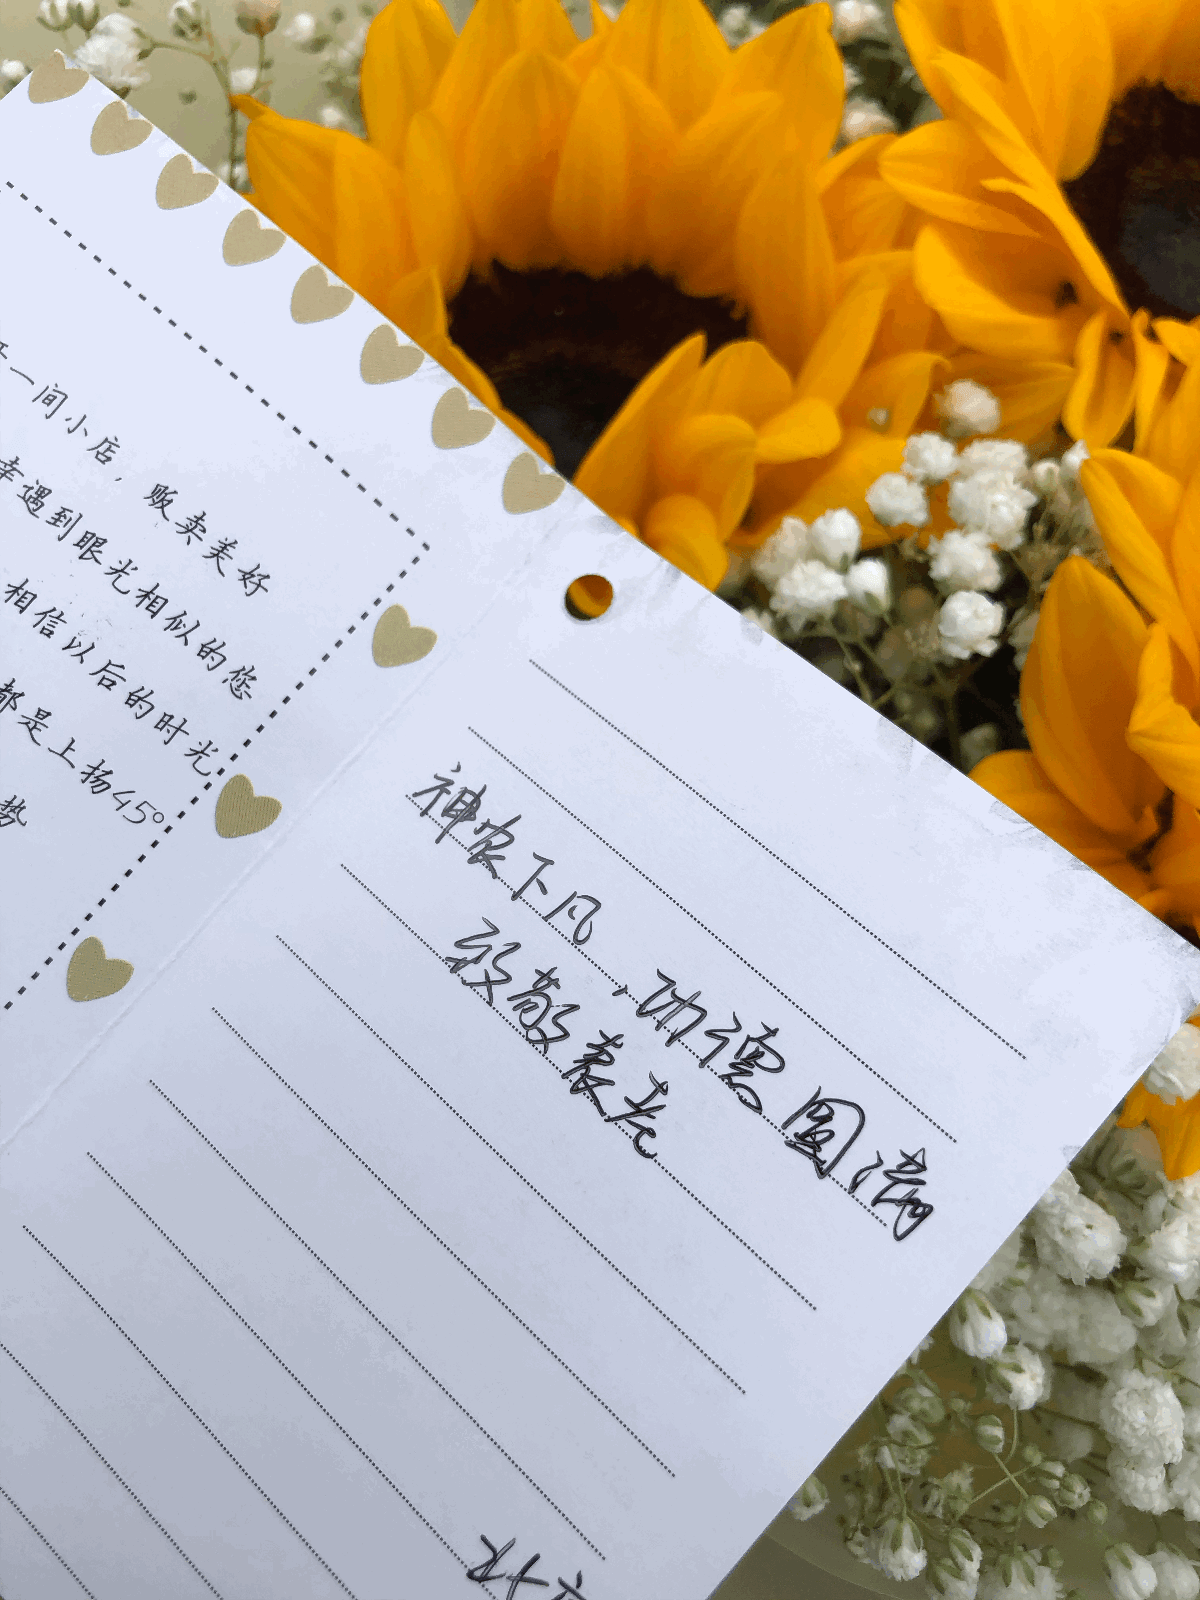 一间小店，贩卖美好
幸遇到眼光相似的您
相信以后的时光
都是上扬45°
势
神农下凡，功德圆满
致敬袁老